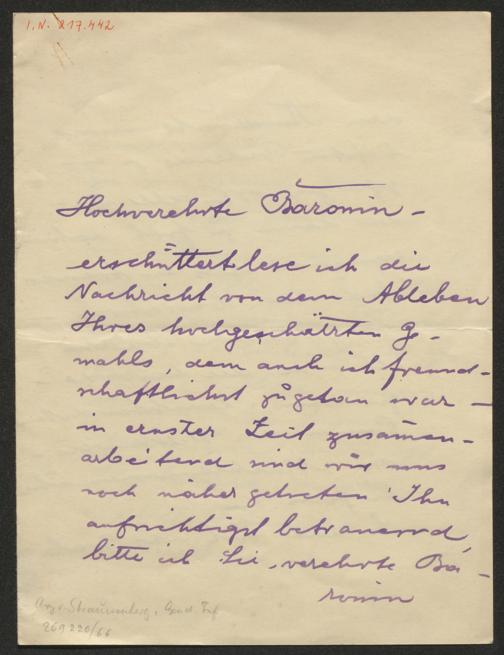 I.N. 217.442
Hochverehrte Baronin –
erschüttert lese ich die
Nachricht von dem Ableben
Ihres hochgeschätzten Ge-
mahls, dem auch ich freund-
schaftlichst zugetan war –
in ernster Zeit zusammen-
arbeitend sind wir uns
noch näher getreten Ihn
aufrichtigst betrauernd,
bitte ich Sie, verehrte Ba-
ronin
269220/66